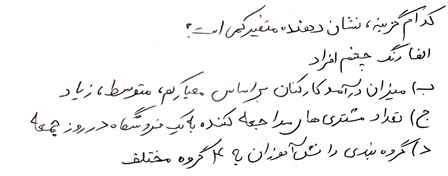 کدام گزینه، نشان دهنده متغیر کمی است؟
الف) رنگ چشم افراد
ب) میزان درآمد کارکنان براساس معیار کم، متوسط، زیاد
ج) تعداد مشتری های مراجعه کننده به یک فروشگاه در روز جمعه
د) گروه بندی دانش آموزان به ۴ گروه مختلف